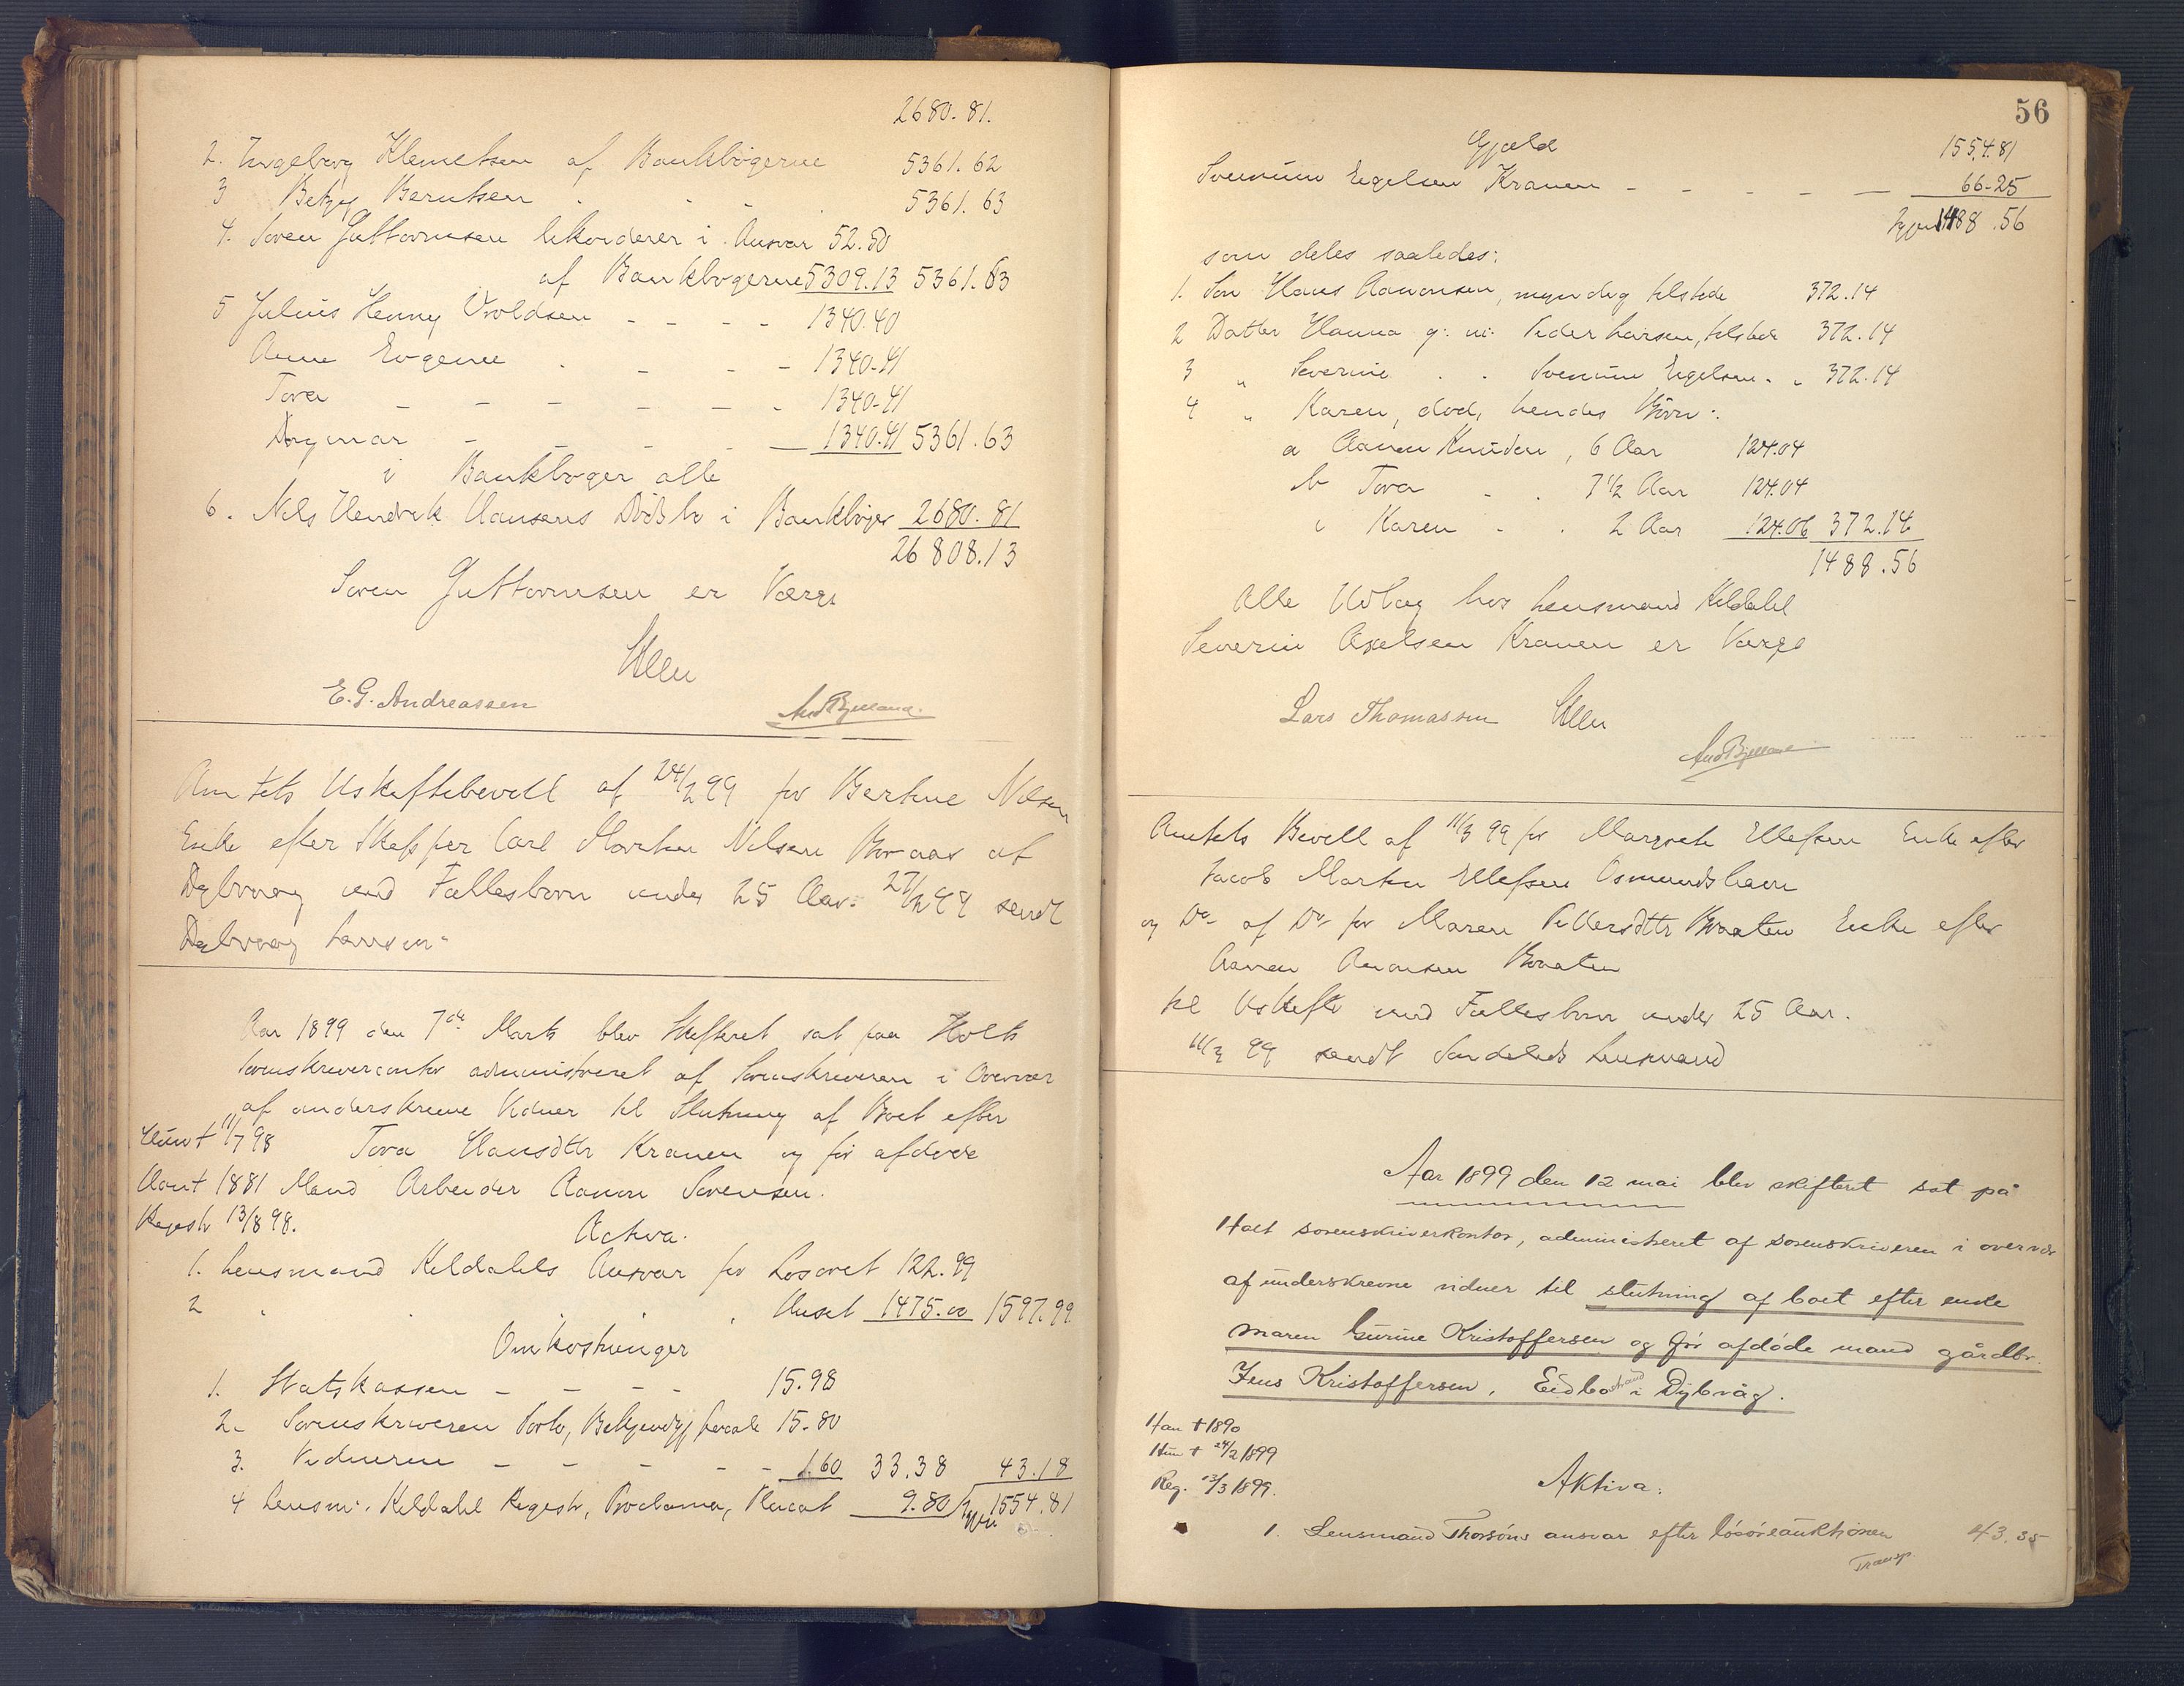 2680.81.
2. Ingeborg Klemetsen af Bankbøgerne 5361.62
3 Betzy Berntsen . - - . 5361.63
4. Søren Guttormsen likviderer i Ansvar 52.50
af Bankbøgerne 5309.13 5361.63
5 Julius Henny Vroldsen - - - - 1340.40
Anne Eugenie . - - - 1340-41
Tora - - - - - - - 1340-41
Dagmar - - - - - 1340.41 5361.63
i Bankbøger alle
6. Nils Hendrik Hansens Dødsbo i Bankbøger 2680.81
26808.13
Søren Guttormsen er Værge
E. G. Andreassen
Amtets Uskiftebevill af 24/2 99 for Bertine Nilsen
Enke efter Skipper Carl Martin Nilsen Boraas af
Dybvaag med Fællesbørn under 25 Aar. 27/2 99 sendt
Dybvaag Lensm.
Aar 1899 den 7de Marts blev Skifteret sat paa Holts
Sorenskrivercontor administreret af Sorenskriveren i Overvær
af underskrevne Vidner til Slutning af Boet efter
Hun † 11/7 98 Tora Hansdtr Kranen og før afdøde
Han † 1881 Mand Arbeider Aanon Sørensen.
Registr 13/8 98.
Activa.
1. Lensmand Keldahls Ansvar for Løsøret 122.99
2 . . . . Huset 1475.00 1597.99
Omkostninger
1. Statskassen - - - - 15.98
2. Sorenskriveren Porto, Bekjendtgj 15.80
3. Vidnerne - - - - - 1.60 33.38 43.18
4 Lensm. Keldahl Registr, Proclama, Placat 9.80 Igjen 1554.81
56
Gjæld 1554.81
Svenum Engelsen Kranen - - - - - 66-25
Igjen 1488.56
som deles saaledes:
1. Søn Hans Aanonsen, myndig tilstede 372.14
2 Datter Hanna g. m. Peder Larsen, tilstede 372.14
3 " Severine . . Svenum Engelsen . " 372.14
4 " Karen, død, hendes Børn:
a Aanon Knudsen, 6 Aar 124.04
b Tora - . 7 1/2 Aar 124.04
c Karen - . 2 Aar 124.06 372.14
1488.56
Alle Udlæg hos Lensmand Keldahl
Severin Axelsen Kranen er Værge
Lars Thomassen
Amtets Bevill af 11/3 99 for Margrete Ellefsen Enke efter
Jacob Martin Ellefsen Osmundshavn
og Do af Do for Maren Pettersdtr Braaten Enke efter
Aanon Aanonsen Braaten
til Uskifte med Fællesbørn under 25 Aar.
11/3 99 sendt Søndeleds Lensmand
Aar 1899 den 12 mai blev skifteret sat på
Holt sorenskriverkontor, administreret af sorenskriveren i overvær
af underskrevne vidner til slutning af boet efter enke
Maren Gurine Kristoffersen og før afdøde mand gårdbr.
Jens Kristoffersen, Eidbostrand i Dybvåg.
Han † 1890
Hun † 24/2 1899
Reg. 13/3 1899.
Aktiva:
1. Lensmand Thorsøns ansvar efter løsøreauktionen 43.35
Transp.